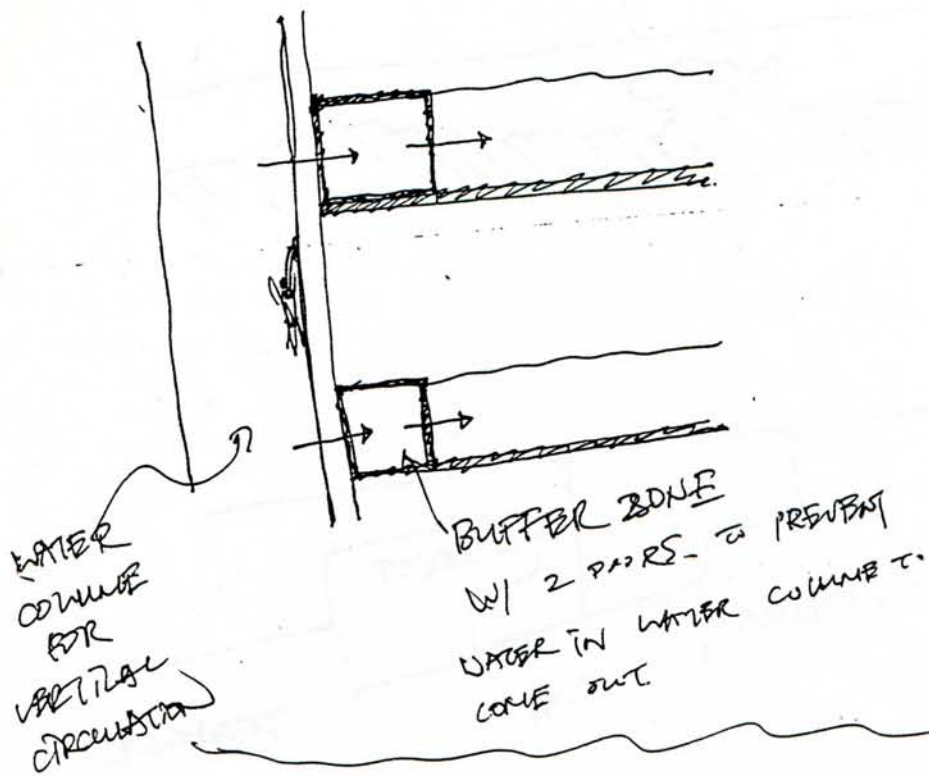 WATER
COLUMNE
FOR
VERTICAL
CIRCULATION
BUFFER ZONE
W/ 2 DOORS TO PREVENT
WATER IN WATER COLUMNE TO
COME OUT.